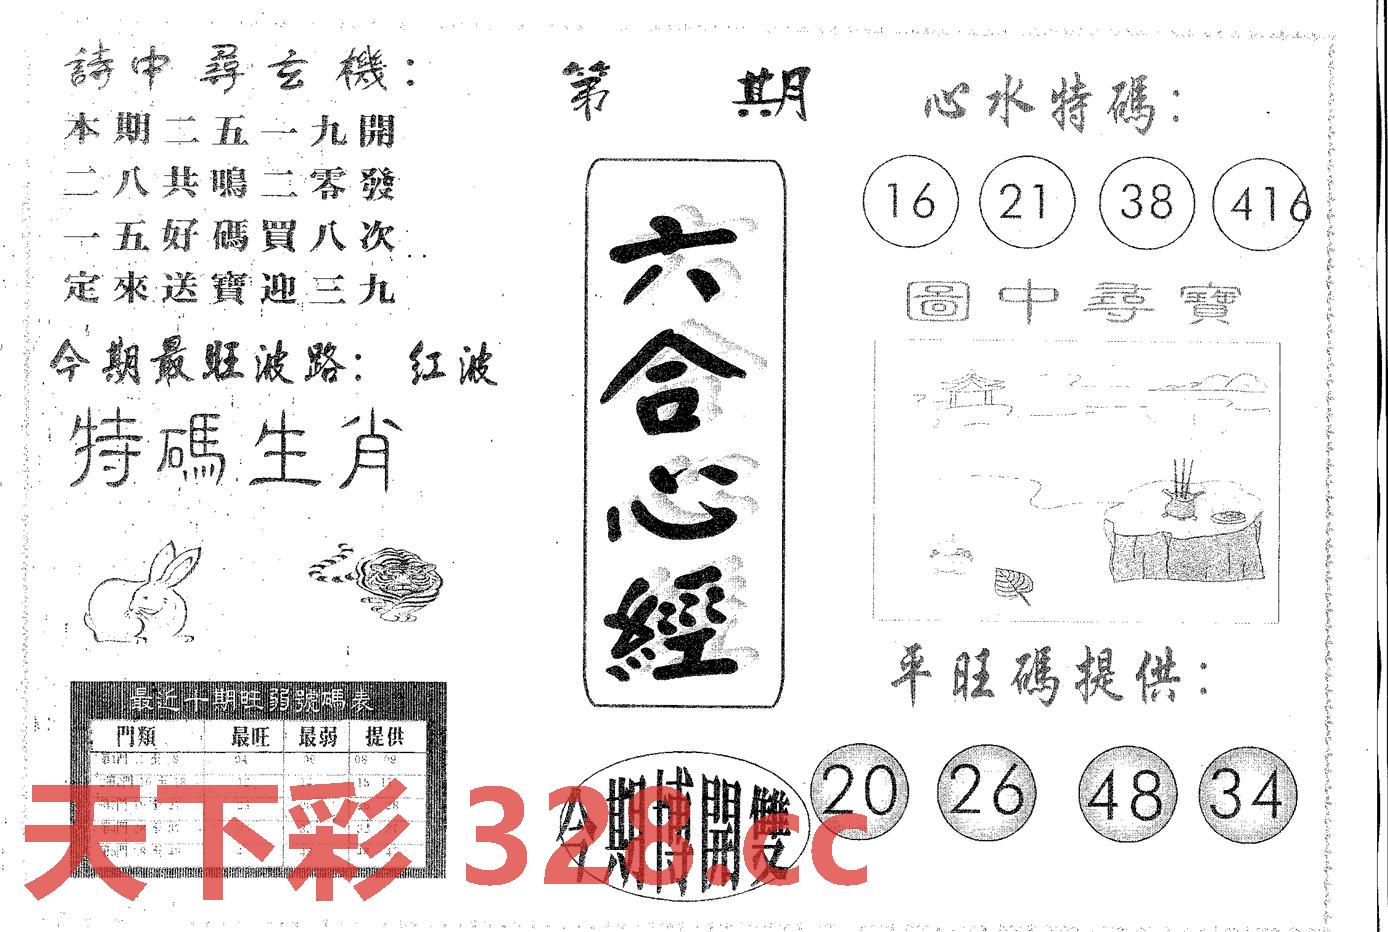 詩中尋玄機：
本期二五一九開
二八共鳴二零發
一五好碼買八次
定來送寶迎三九
今期最旺波路： 红波
特碼生肖
最近十期旺弱號碼表
門類 最旺 最弱 提供
04 06 08 09
第 期
六合心經
今期博開雙
心水特碼：
16 21 38 416
圖中尋寶
平旺碼提供：
20 26 48 34
天下彩 328.cc